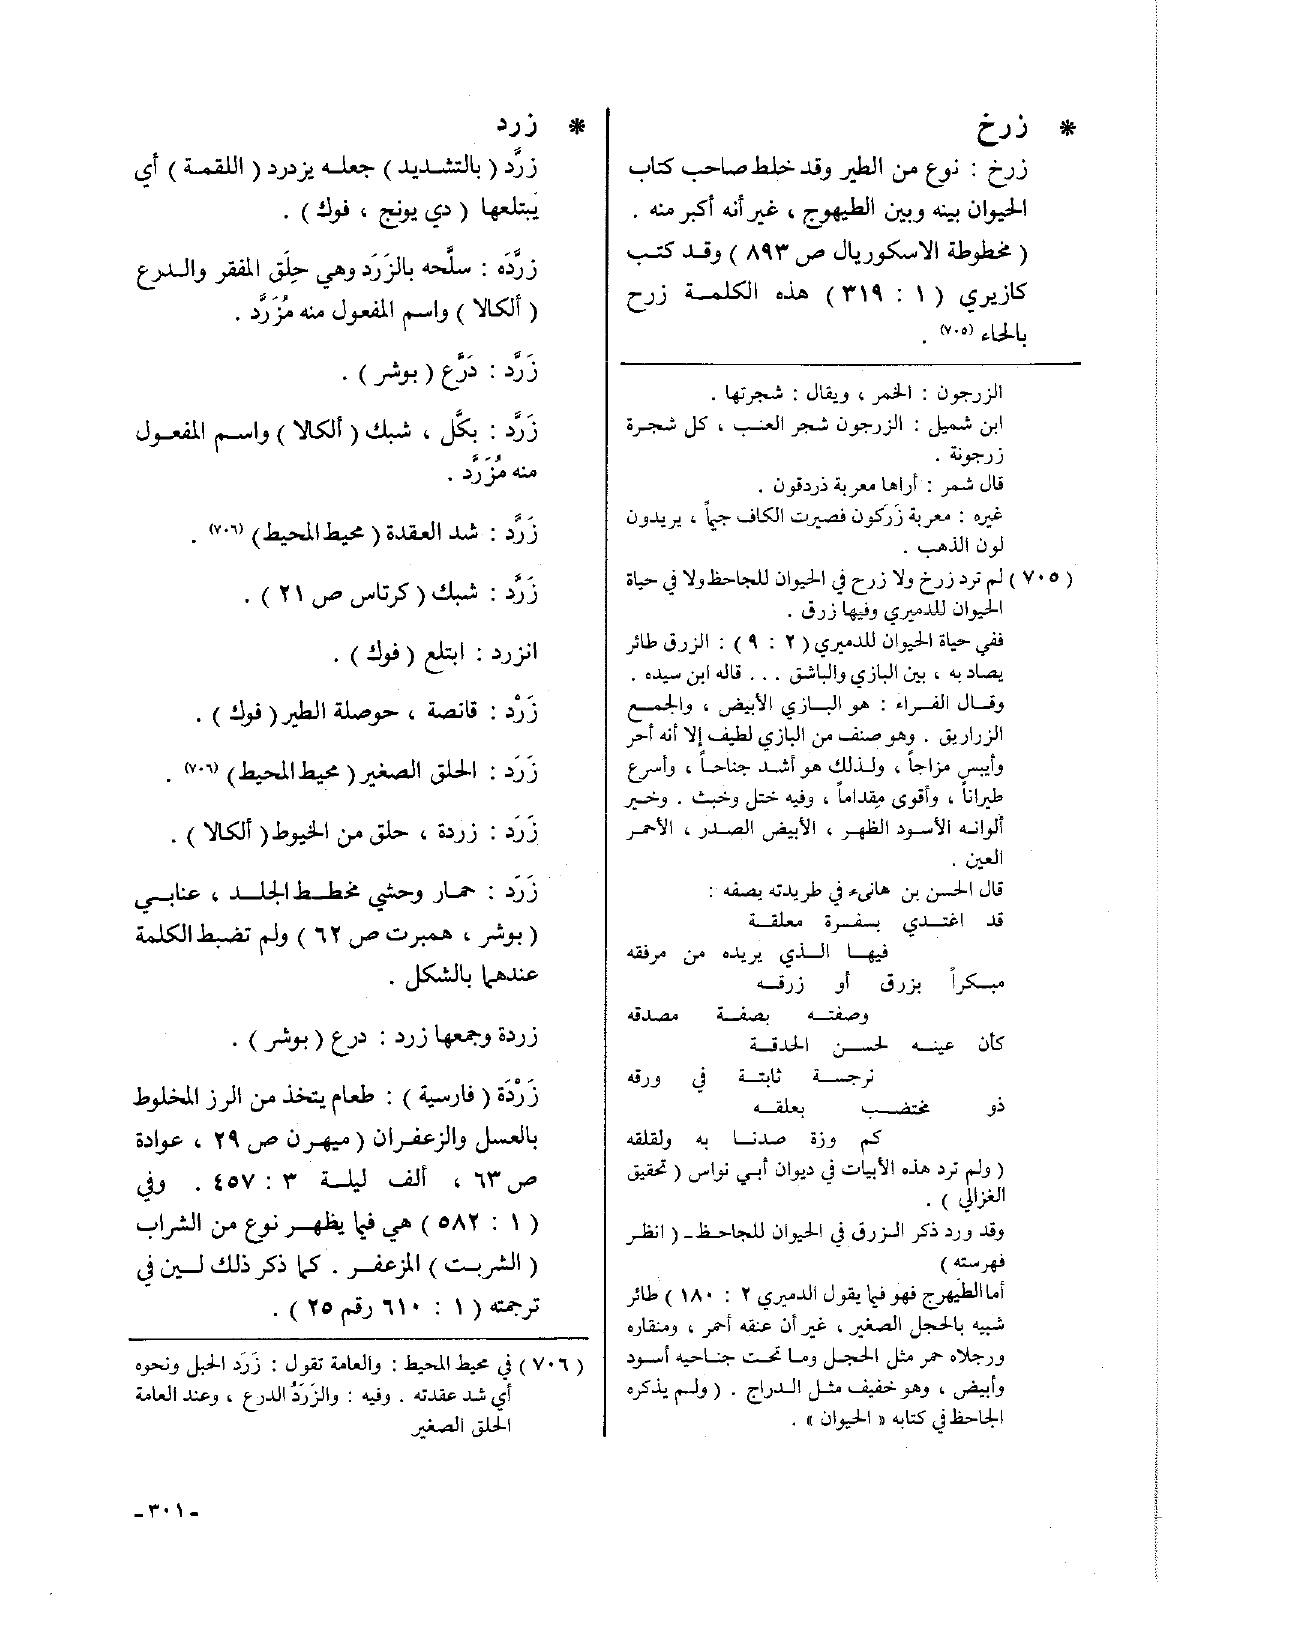 * زرخ
زرخ : نوع من الطير وقد خلط صاحب كتاب
الحيوان بينه وبين الطيهوج ، غير أنه أكبر منه .
( مخطوطة الاسكوريال ص ٨٩٣ ) وقد كتب
كازيري ( ١ : ٣١٩ ) هذه الكلمة زرح
بالحاء (٧٠٥) .
الزرجون : الخمر ، ويقال : شجرتها .
ابن شميل : الزرجون شجر العنب ، كل شجرة
زرجونة .
قال شمر : أراها معربة ذردقون .
غيره : معربة زَرَكون فصيرت الكاف جيماً ، يريدون
لون الذهب .
( ٧٠٥ ) لم ترد زرخ ولا زرح في الحيوان للجاحظ ولا في حياة
الحيوان للدميري وفيها زرق .
ففي حياة الحيوان للدميري ( ٢ : ٩ ) : الزرق طائر
يصاد به ، بين البازي والباشق . . . قاله ابن سيده .
وقال الفراء : هو البازي الأبيض ، والجمع
الزراريق . وهو صنف من البازي لطيف إلا أنه أحر
وأيبس مزاجاً ، ولذلك هو أشد جناحاً ، وأسرع
طيراناً ، وأقوى مِقداماً ، وفيه ختل وخبث . وخير
ألوانه الأسود الظهر ، الأبيض الصدر ، الأحمر
العين .
قال الحسن بن هانىء في طريدته يصفه :
قد اغتدي بسفرة معلقة
فيها الذي يريده من مرفقه
مبكراً بزرق أو زرقه
وصفته بصفة مصدقه
كأن عينه لحسن الحدقة
نرجسة ثابتة في ورقه
ذو مختضب بعلقه
كم وزة صدنا به ولقلقه
( ولم ترد هذه الأبيات في ديوان أبي نواس ( تحقيق
الغزالي ) .
وقد ورد ذكر الزرق في الحيوان للجاحظ - ( انظر
فهرسته )
أما الطَيهرج فهو فيما يقول الدميري ٢ : ١٨٠ ) طائر
شبيه بالحجل الصغير ، غير أن عنقه أحمر ، ومنقاره
ورجلاه حمر مثل الحجل وما تحت جناحيه أسود
وأبيض ، وهو خفيف مثل الدراج . ( ولم يذكره
الجاحظ في كتابه « الحيوان » .
* زرد
زرَّد ( بالتشديد ) جعله يزدرد ( اللقمة ) أي
يَبتلعها ( دي يونج ، فوك ) .
زرَّدَه : سلَّحه بالزَرَد وهي حِلَق المفقر والدرع
( ألكالا ) واسم المفعول منه مُزَرَّد .
زَرَّد : دَرَّع ( بوشر ) .
زَرَّد : بكَّل ، شبك ( ألكالا ) واسم المفعول
منه مُزَرَّد .
زَرَّد : شد العقدة ( محيط المحيط ) (٧٠٦) .
زَرَّد : شبك ( كرتاس ص ٢١ ) .
انزرد : ابتلع ( فوك ) .
زَرْد : قانصة ، حوصلة الطير ( فوك ) .
زَرَد : الحلق الصغير ( محيط المحيط ) (٧٠٦) .
زَرَد : زردة ، حلق من الخيوط ( ألكالا ) .
زَرَد : حمار وحشي مخطط الجلد ، عنابي
( بوشر ، همبرت ص ٦٢ ) ولم تضبط الكلمة
عندهما بالشكل .
زردة وجمعها زرد : درع ( بوشر ) .
زَرْدَة ( فارسية ) : طعام يتخذ من الرز المخلوط
بالعسل والزعفران ( ميهرن ص ٢٩ ، عوادة
ص ٦٣ ، ألف ليلة ٣ : ٤٥٧ . وفي
( ١ : ٥٨٢ ) هي فيما يظهر نوع من الشراب
( الشربت ) المزعفر . كما ذكر ذلك لين في
ترجمته ( ١ : ٦١٠ رقم ٢٥ ) .
( ٧٠٦ ) في محيط المحيط : والعامة تقول : زَرَد الحبل ونحوه
أي شد عقدته . وفيه : والزَرَدُ الدرع ، وعند العامة
الحلق الصغير
- ٣٠١ -